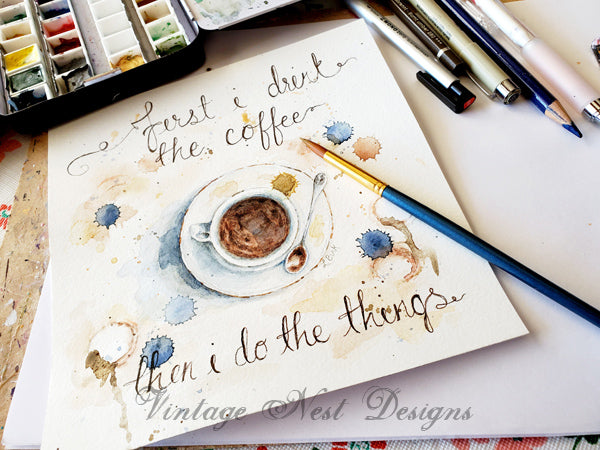 first i drink
the coffee
then i do the things
Vintage Nest Designs